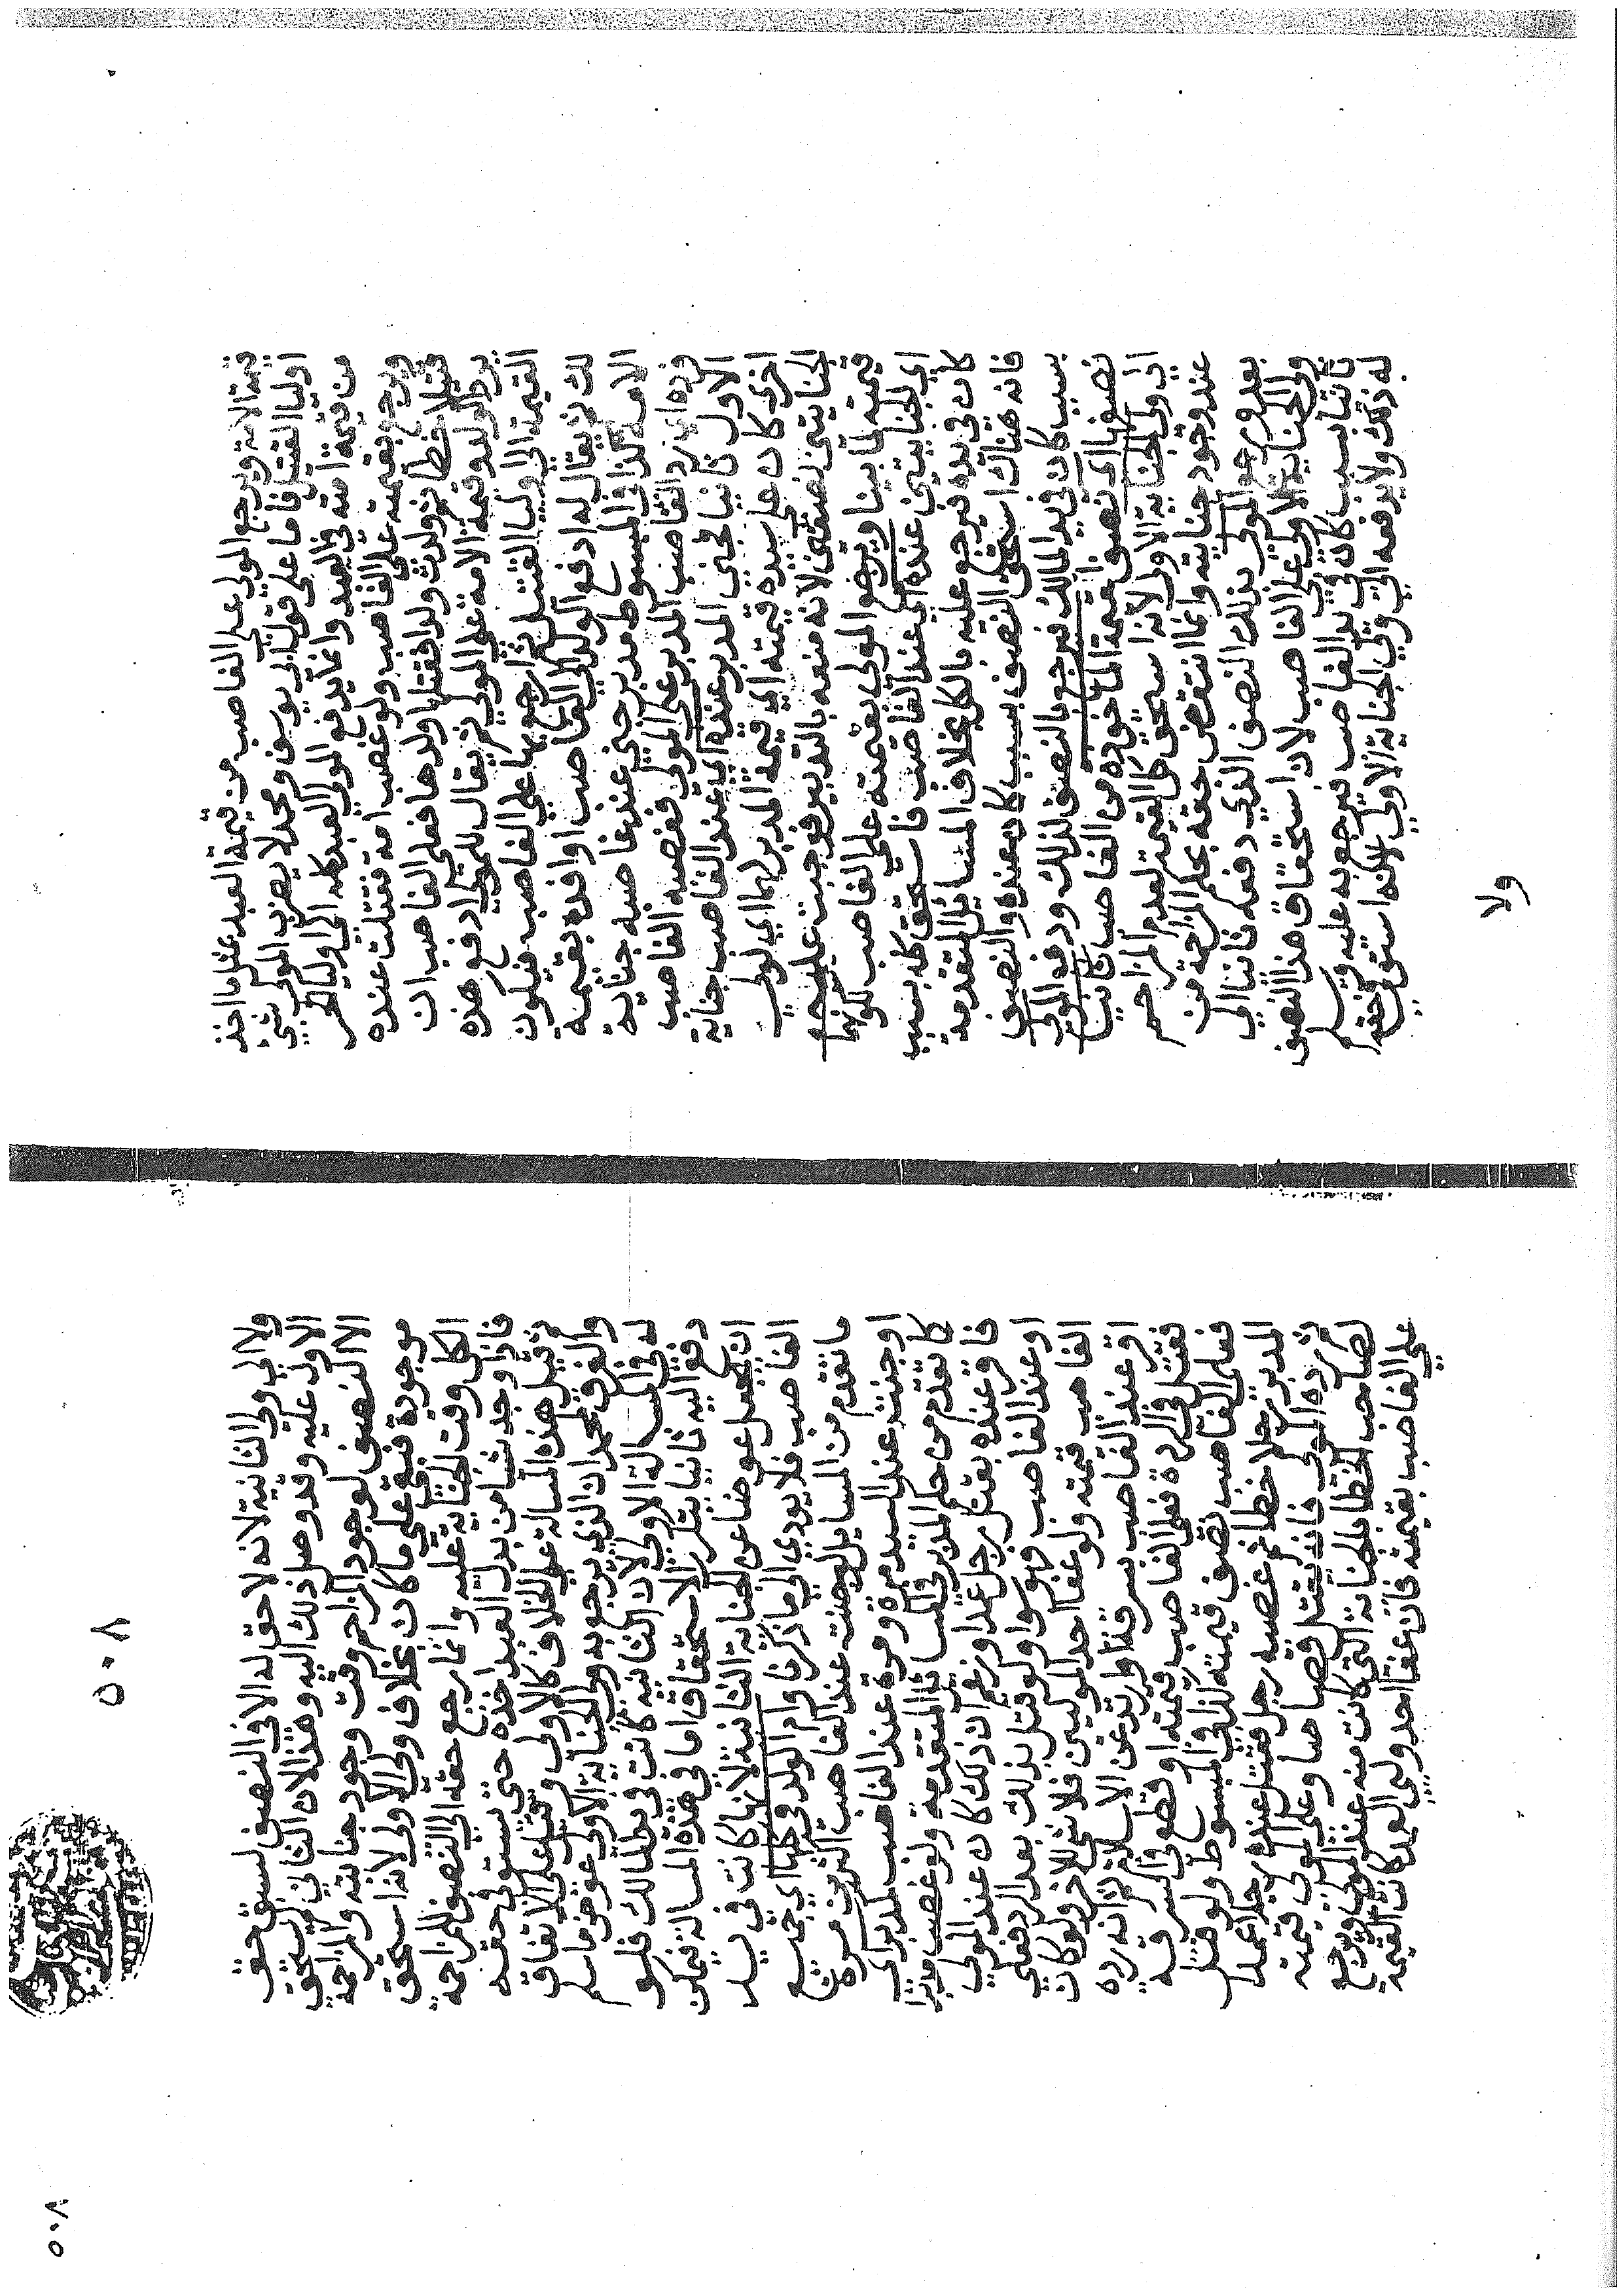 قيمة الامة ويرجع المولى على الغاصب من قيمة العبد بمثل ما اخذ
اوليا القتيل فاما على قول ابي يوسف ومحمد لا يضرب المولى بشي
من قيمة امته في العبد وانما يدفع المولى العبد كله الى اوليائه
ويرجع بقيمته على الغاصب ولو غصب امة فقتلت عنده
قتيلا خطا ثم ولدت ولدا فقتلها ولدها فعلى الغاصب ان
يرد الولد وقيمة الامة على المولى ثم يقال للمولى ادفع هذه
القيمة الى اوليا القتيل ثم ارجع بها على الغاصب فيكون
لك ثم يقال له ادفع الولد الى الغاصب او افده بقيمة
الامة كذا في المبسوط مدبر جنى عند غاصبه جناية
فرده اي رد الغاصب المدبر على المولى فغصبه الغاصب
الاول ثانيا فجنى المدبر عنده اي عند الغاصب جناية
اخرى كان على سيده قيمته اي قيمة المدبر لهما اي لولي
الجنايتين نصفين لانه منعه بالتدبير فوجبت عليه
قيمته لما بينا ويرجع المولى بقيمته على الغاصب لكونهما
اي الجنايتين عنده اي عند الغاصب فاستحق كله بسبب
كان في يده فيرجع عليه بالكل بخلاف المسائل المتقدمة
فانه هناك استحق النصف بسبب كان عنده والنصف
بسبب كان في يد المالك فيرجع بالنصف لذلك ودفع المولى
نصفها اي نصف قيمة الماخوذة من الغاصب ثانيا
الى ولي الجناية الاولى لانه استحق كل القيمة لعدم المزاحم
عند وجود جنايته وانما انتقض حقه بحكم المزاحمة من
بعد ويرجع المولى بذلك النصف الذي دفعه ثانيا الى
ولي الجناية الاولى على الغاصب لان استحقاق هذا النصف
ثانيا بسبب كان في يد الغاصب فيرجع به عليه ويسلم
له ذلك ولا يدفعه الى ولي الجناية الاولى لانه استوفى حقه
ولا
ولا الى ولي الثانية لانه لا حق له الا في النصف لسبق حق
الاول عليه وقد وصل ذلك اليه وهذا لان الثاني يستحق
الا النصف لوجود المزاحم وقت وجود جنايته والمزاحمة
موجودة فبقي على ما كان بخلاف ولي الاولى لانه استحق
الكل وقت الجناية عليه وانما رجع حقه الى النصف للمزاحمة
فاذا وجد شيا من بدل العبد اخذه حتى يستوفى حقه
ثم قيل هذه المسالة على الخلاف كالاولى وقيل على الاتفاق
والفرق لمحمد ان الذي يرجع به ولي الجناية الاولى عوض ما سلم
له في المسالة الاولى لان الثانية كانت في يد المالك فلو
دفع اليه ثانيا يتكرر الاستحقاق اما في هذه المسالة فيمكن
ان يجعل عوضا عن الجناية الثانية لانها كانت في يد
الغاصب فلا يودي الى ما ذكرنا وام الولد في كلها اي جميع
ما تقدم من المسايل لو جنت عند الغاصب مرتين مرة
او جنت عند السيد مرة ومرة عند الغاصب كمدبر اي
كما تقدم من حكم المدبر في المسائل المتقدمة ولو غصب مدبرا
فاقر عنده بقتل رجل عمدا وزعم ان ذلك كان عند المولى
او عند الغاصب فهو سوا ولو قتل بذلك بعد الرد فعلى
الغاصب قيمته ولو عفا احد الوليين فلا شي للاخر ولو كان
اقر عند الغاصب بسرقة او ارتد عن الاسلام ثم انه رده
فقتل في الردة فعلى الغاصب قيمته او قطع في السرقة
فعلى الغاصب نصف قيمته كذا في المبسوط ولو قتل
المدبر رجلا خطا ثم غصبه رجل فقتل عنده رجلا عمدا
ثم رده المولى فانه يقتل قصاصا وعلى المولى قيمته
لصاحب الخطا بالجناية التي كانت منه عند المولى ويرجع
على الغاصب بقيمته فان عفا احد وليي العمد كانت القيمة
٥٠٨
٥٠٨